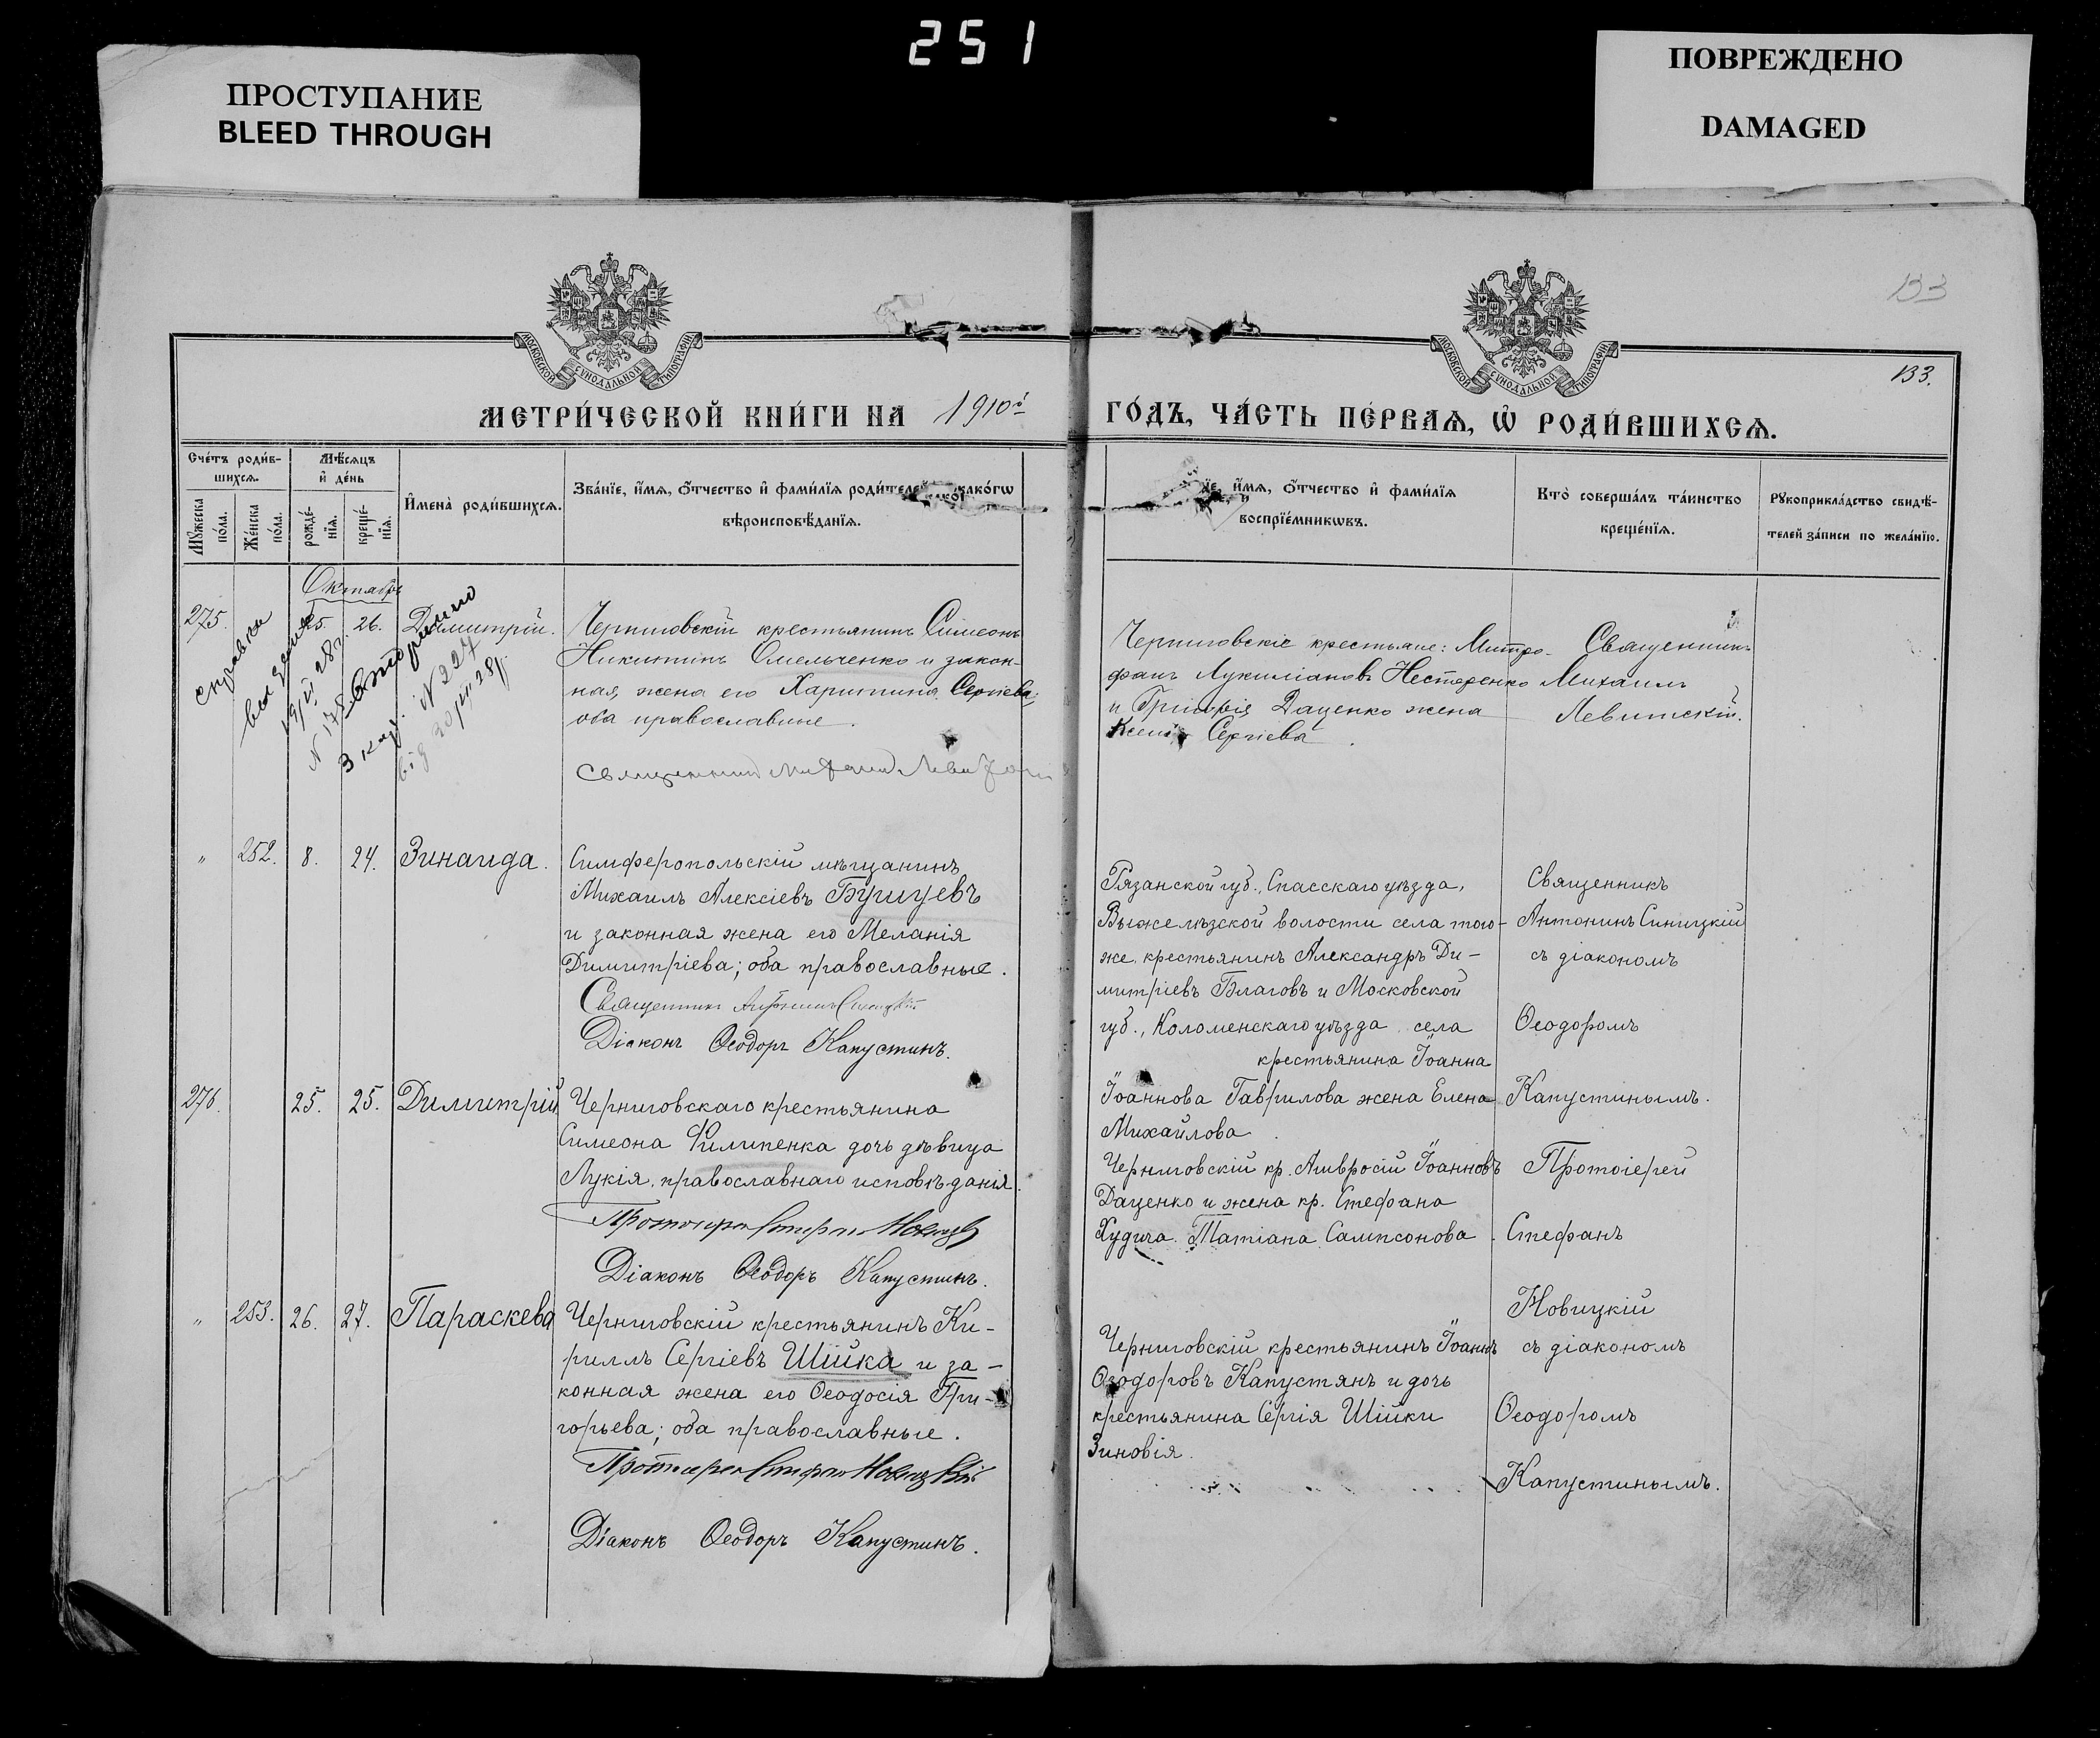 251
ПРОСТУПАНИЕ
BLEED THROUGH
ПОВРЕЖДЕНО
DAMAGED
133
133.
МОСКОВСКОЙ СѴНОДАЛЬНОЙ ТИПОГРАФІИ
МОСКОВСКОЙ СѴНОДАЛЬНОЙ ТИПОГРАФІИ
МЕТРИ́ЧЕСКОЙ КНИ́ГИ НА 1910й
ГО́ДЪ, ЧА́СТЬ ПЕ́РВАѦ, Ѽ РОДИ́ВШИХСѦ.
Сче́тъ роди́в-
шихсѧ.
Мꙋжеска по́ла.
Же́нска по́ла.
Мѣ́сѧцъ
и҆ де́нь
рожде́-
нїѧ.
креще́-
нїѧ.
И҆мена̀ роди́вшихсѧ.
Зва́нїе, и҆́мѧ, ѻ҆́тчество и҆ фами́лїѧ роди́телей како́гѡ
вѣроисповѣ́данїѧ.
и҆́мѧ, ѻ҆́тчество и҆ фами́лїѧ
воспрїе́мникѡвъ.
Кто̀ соверша́лъ та́инство
креще́нїѧ.
Рꙋкоприкла́дство свидѣ́-
телей за́писи по жела́нїю.
Октябрь
275.
25.
26.
Димитрій.
справка
выдана
19/II 28г.
N 178
вторично
N 224
від 30/III 28р.
Черниговскій крестьянинъ Симеонъ
Никитинъ Омельченко и закон-
ная жена его Харитина Сергіева;
оба православные.
Священникъ Михаилъ Левитскій
Черниговскіе крестьяне: Митро-
фанъ Лукиліановъ Нестеренко
и Григорія Даценко жена
Ксенія Сергіева.
Священникъ
Михаилъ
Левитскій.
"
252.
8.
24.
Зинаида.
Симферопольскій мѣщанинъ
Михаилъ Алексіевъ Бушуевъ
и законная жена его Меланія
Димитріева; оба православные.
Священникъ Антонинъ Синицкій
Діаконъ Ѳеодоръ Капустинъ.
Рязанской губ., Спасскаго уѣзда,
Выжелѣзской волости села того-
же, крестьянинъ Александръ Ди-
митріевъ Благовъ и Московской
губ., Коломенскаго уѣзда, села
крестьянина Іоанна
Іоаннова Гаврилова жена Елена
Михайлова.
Священникъ
Антонинъ Синицкій
съ діакономъ
Ѳеодоромъ
Капустинымъ.
276.
25.
25.
Димитрій
Черниговскаго крестьянина
Симеона Филипенка дочь дѣвица
Лукія, православнаго исповѣданія.
Протоіерей Стефанъ Новицкій
Діаконъ Ѳеодоръ Капустинъ.
Черниговскій кр. Амвросій Іоанновъ
Даценко и жена кр. Стефана
Худича Татіана Сампсонова.
Протоіерей
Стефанъ
Новицкій
съ діакономъ
Ѳеодоромъ
Капустинымъ.
"
253.
26.
27.
Параскева
Черниговскій крестьянинъ Ки-
риллъ Сергіевъ Шійка и за-
конная жена его Ѳеодосія Гри-
горьева; оба православные.
Протоіерей Стефанъ Новицкій
Діаконъ Ѳеодоръ Капустинъ.
Черниговскій крестьянинъ Іоаннъ
Ѳеодоровъ Капустянъ и дочь
крестьянина Сергія Шійки
Зиновія.